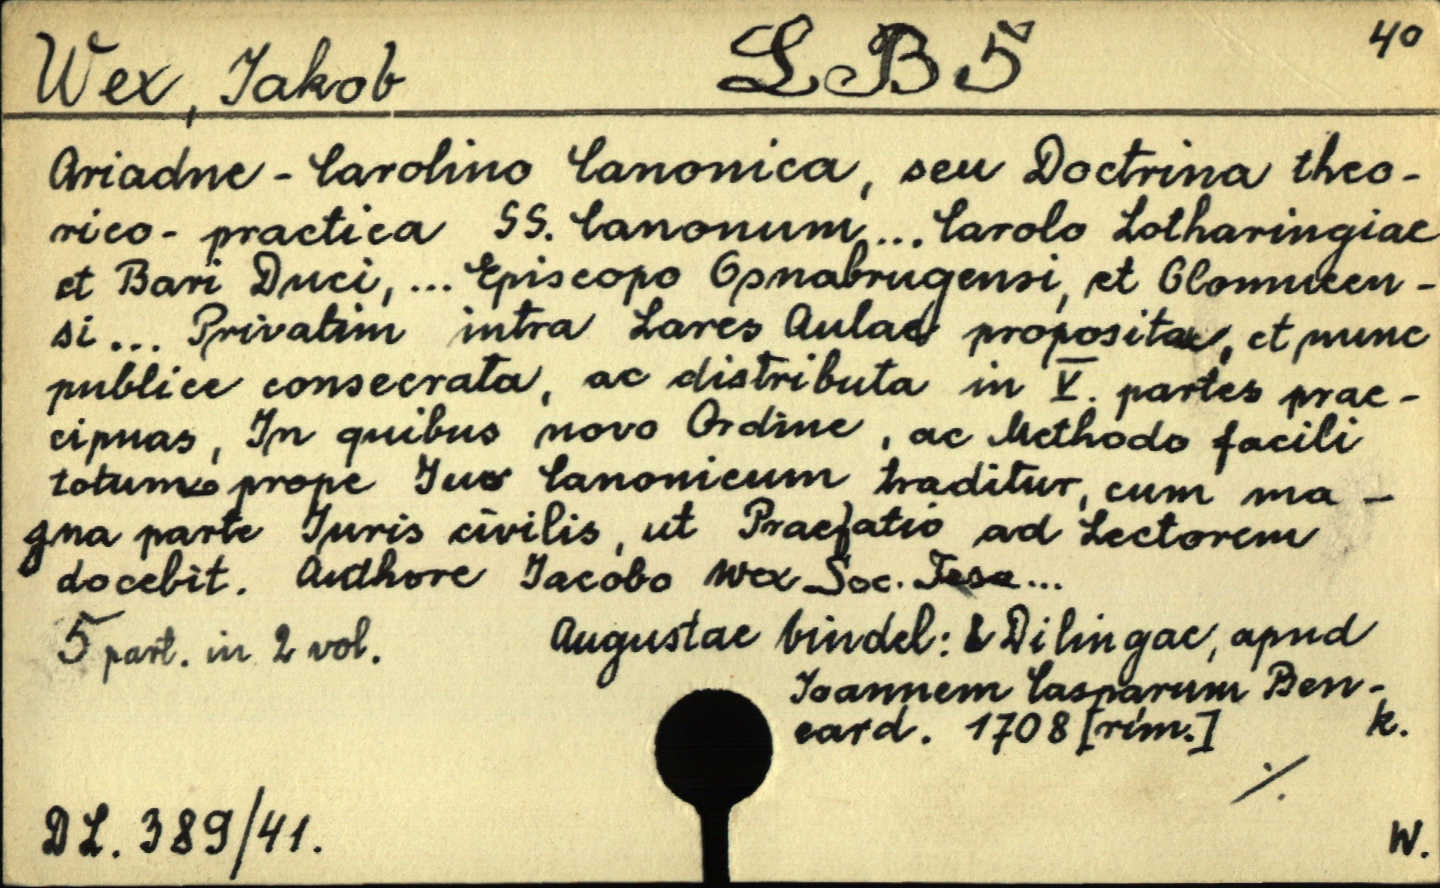 Wex, Jakob
LB5
40
Ariadne - Carolino Canonica, seu Doctrina theo-
rico- practica SS. Canonum ... Carolo Lotharingiae
et Bari Duci, ... Episcopo Osnabrugensi, et Olomucen-
si ... Privatim intra Lares Aulae proposita, et nunc
publice consecrata, ac distributa in V. partes prae-
cipuas, In quibus novo Ordine, ac Methodo facili
totum prope Jus Canonicum traditur, cum ma-
gna parte Juris civilis, ut Praefatio ad Lectorem
docebit. Authore Jacobo Wex Soc. Jesu ...
5 part. in 2 vol.
Augustae Vindel: & Dilingae, apud
Joannem Casparum Ben-
card. 1708 [rím.]
k.
%
DL. 389/41.
W.